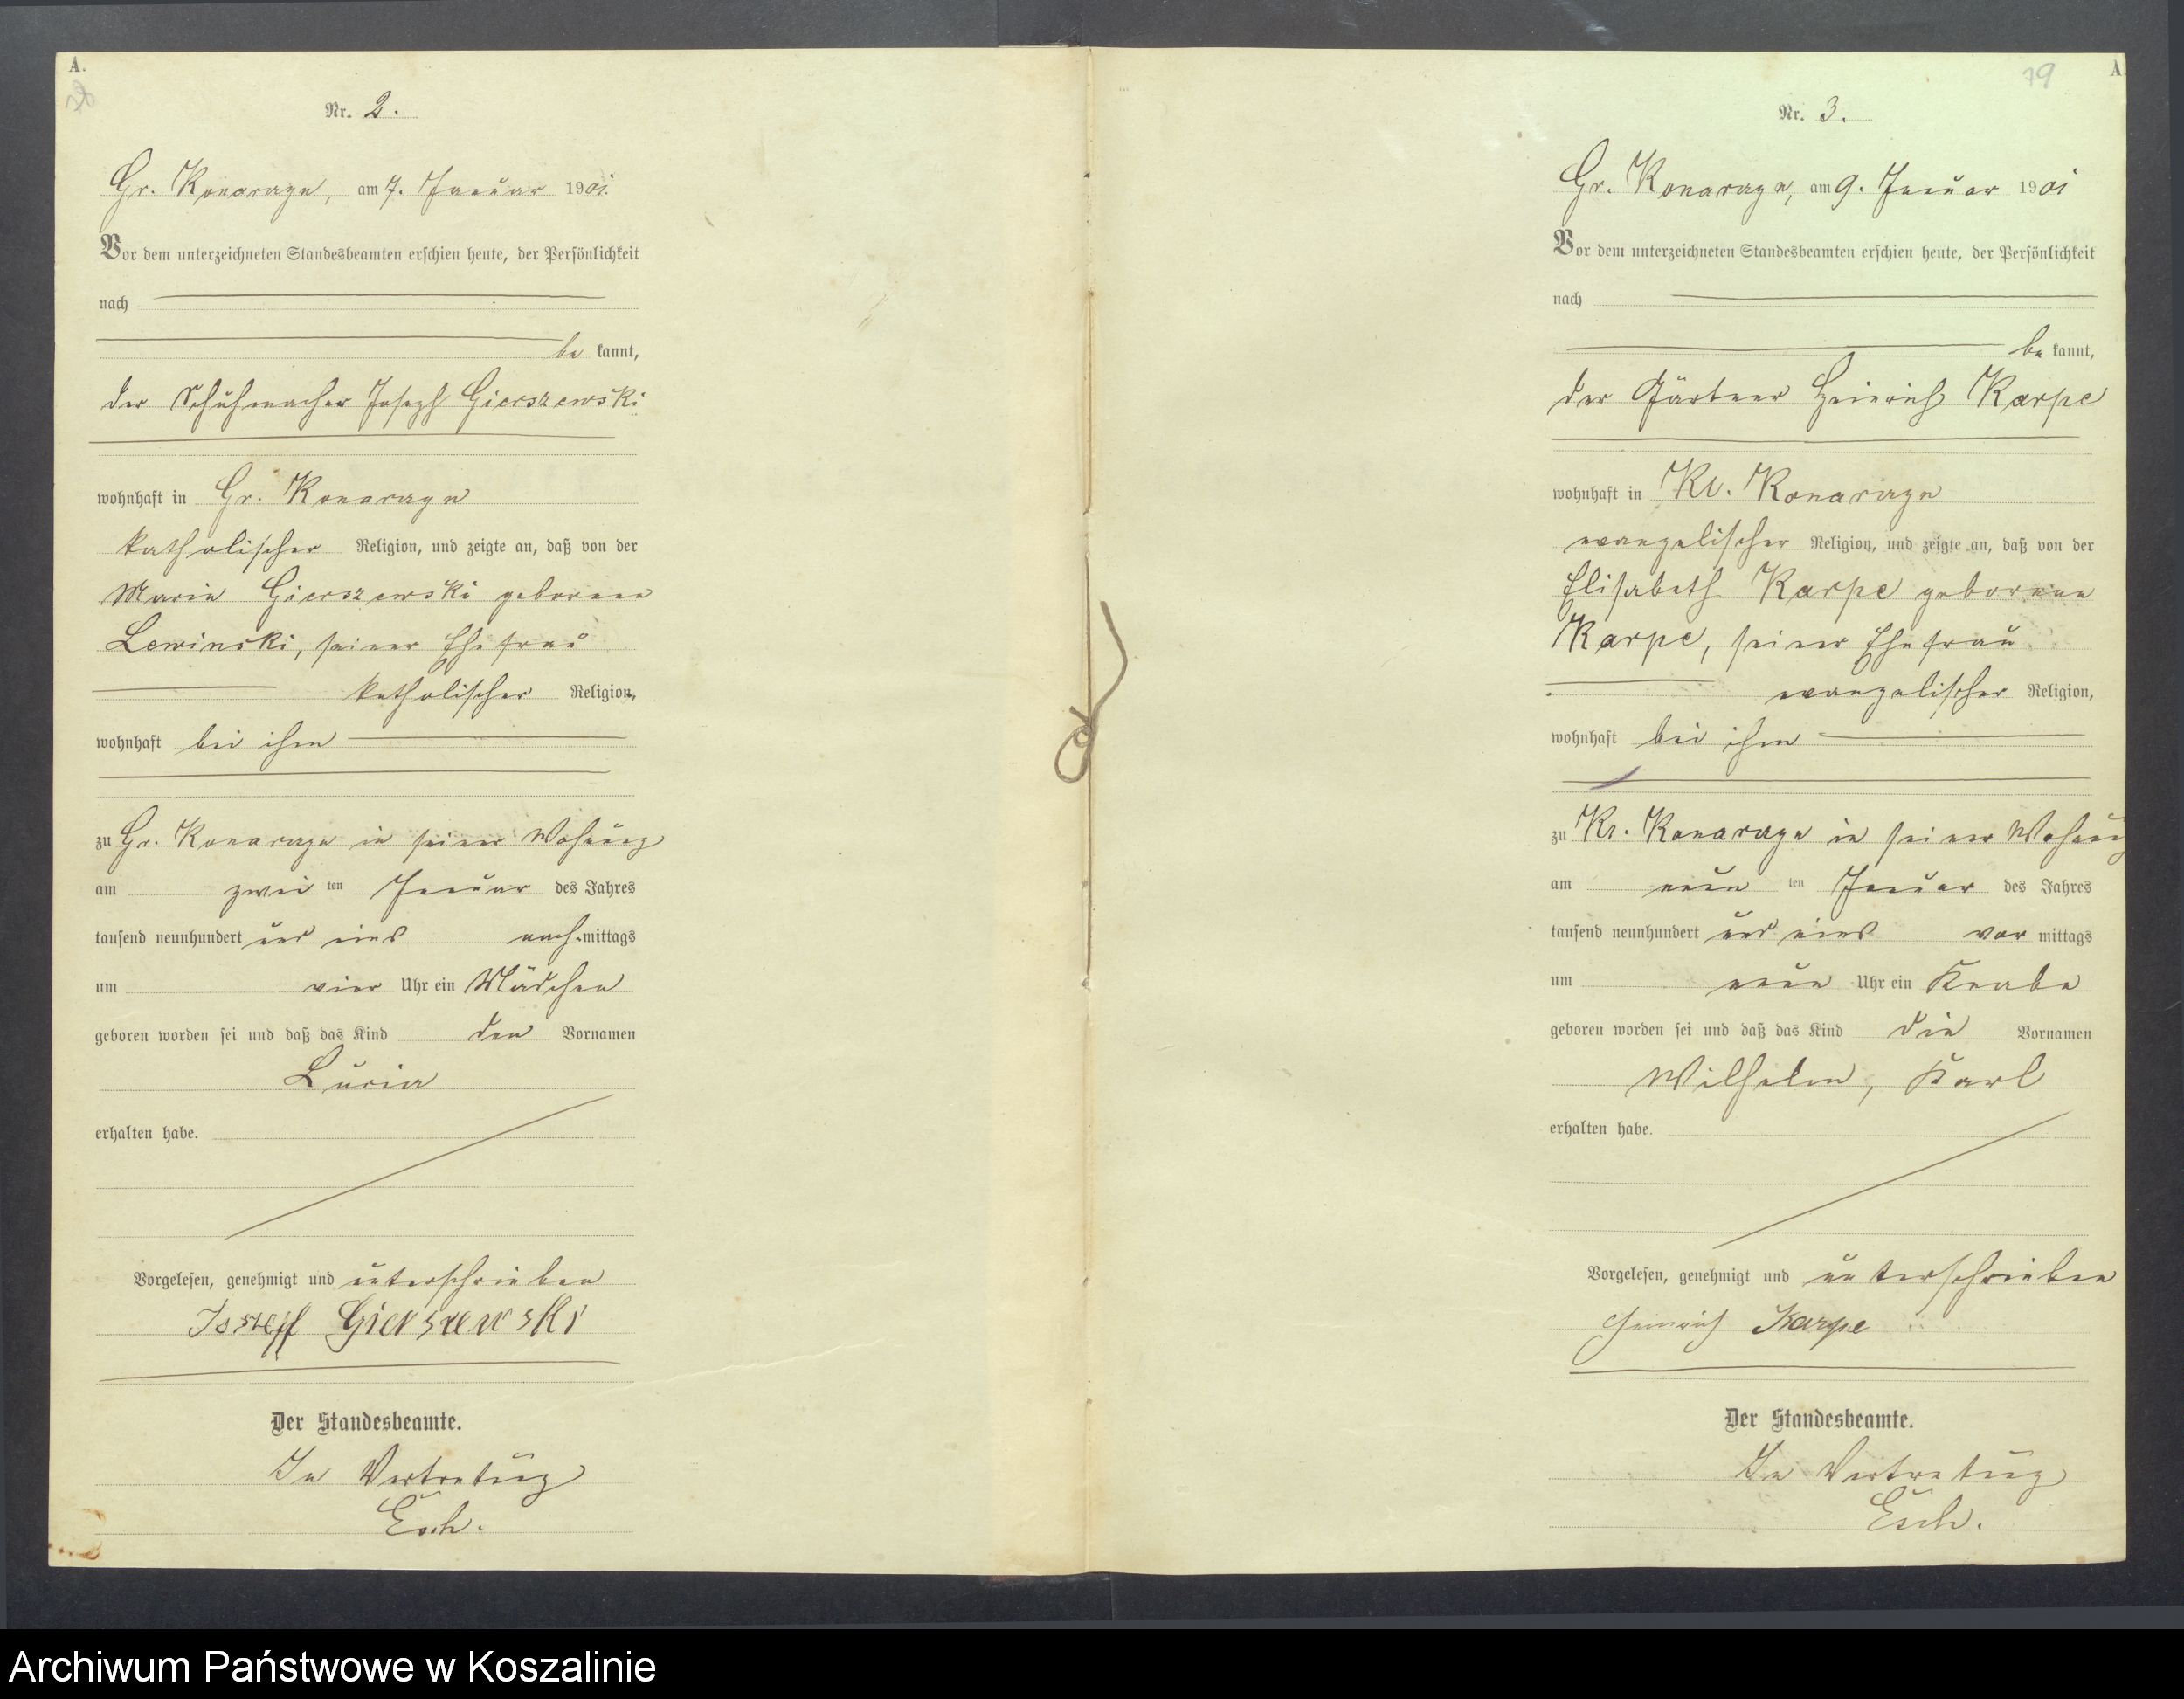 A.
Nr. 2.
Gr. Konarczyn, am 7. Januar 1901.
Vor dem unterzeichneten Standesbeamten erschien heute, der Persönlichkeit
nach
be kannt,
der Schuhmacher Joseph Gierszewski
wohnhaft in Gr. Konarczyn
katholischer Religion, und zeigte an, daß von der
Maria Gierszewski geborenen
Lewinski, seiner Ehefrau
katholischer Religion,
wohnhaft bei ihm
zu Gr. Konarczyn in seiner Wohnung
am zwei ten Januar des Jahres
tausend neunhundert und eins nach mittags
um vier Uhr ein Mädchen
geboren worden sei und daß das Kind den Vornamen
erhalten habe.
Vorgelesen, genehmigt und unterschrieben
Gierszewski
Der Standesbeamte.
In Vertretung
Esch.
79
A.
Nr. 3.
Gr. Konarczyn, am 9. Januar 1901
Vor dem unterzeichneten Standesbeamten erschien heute, der Persönlichkeit
nach
be kannt,
der Gärtner Heinrich Karpe
wohnhaft in Kl. Konarczyn
evangelischer Religion, und zeigte an, daß von der
Elisabeth Karpe geborenen
Karpe, seiner Ehefrau
evangelischer Religion,
wohnhaft bei ihm
zu Kl. Konarczyn in seiner Wohnung
am neun ten Januar des Jahres
tausend neunhundert und eins vor mittags
um neun Uhr ein Knabe
geboren worden sei und daß das Kind die Vornamen
Wilhelm, Karl
erhalten habe.
Vorgelesen, genehmigt und unterschrieben
Heinrich Karpe
Der Standesbeamte.
In Vertretung
Esch.
Archiwum Państwowe w Koszalinie